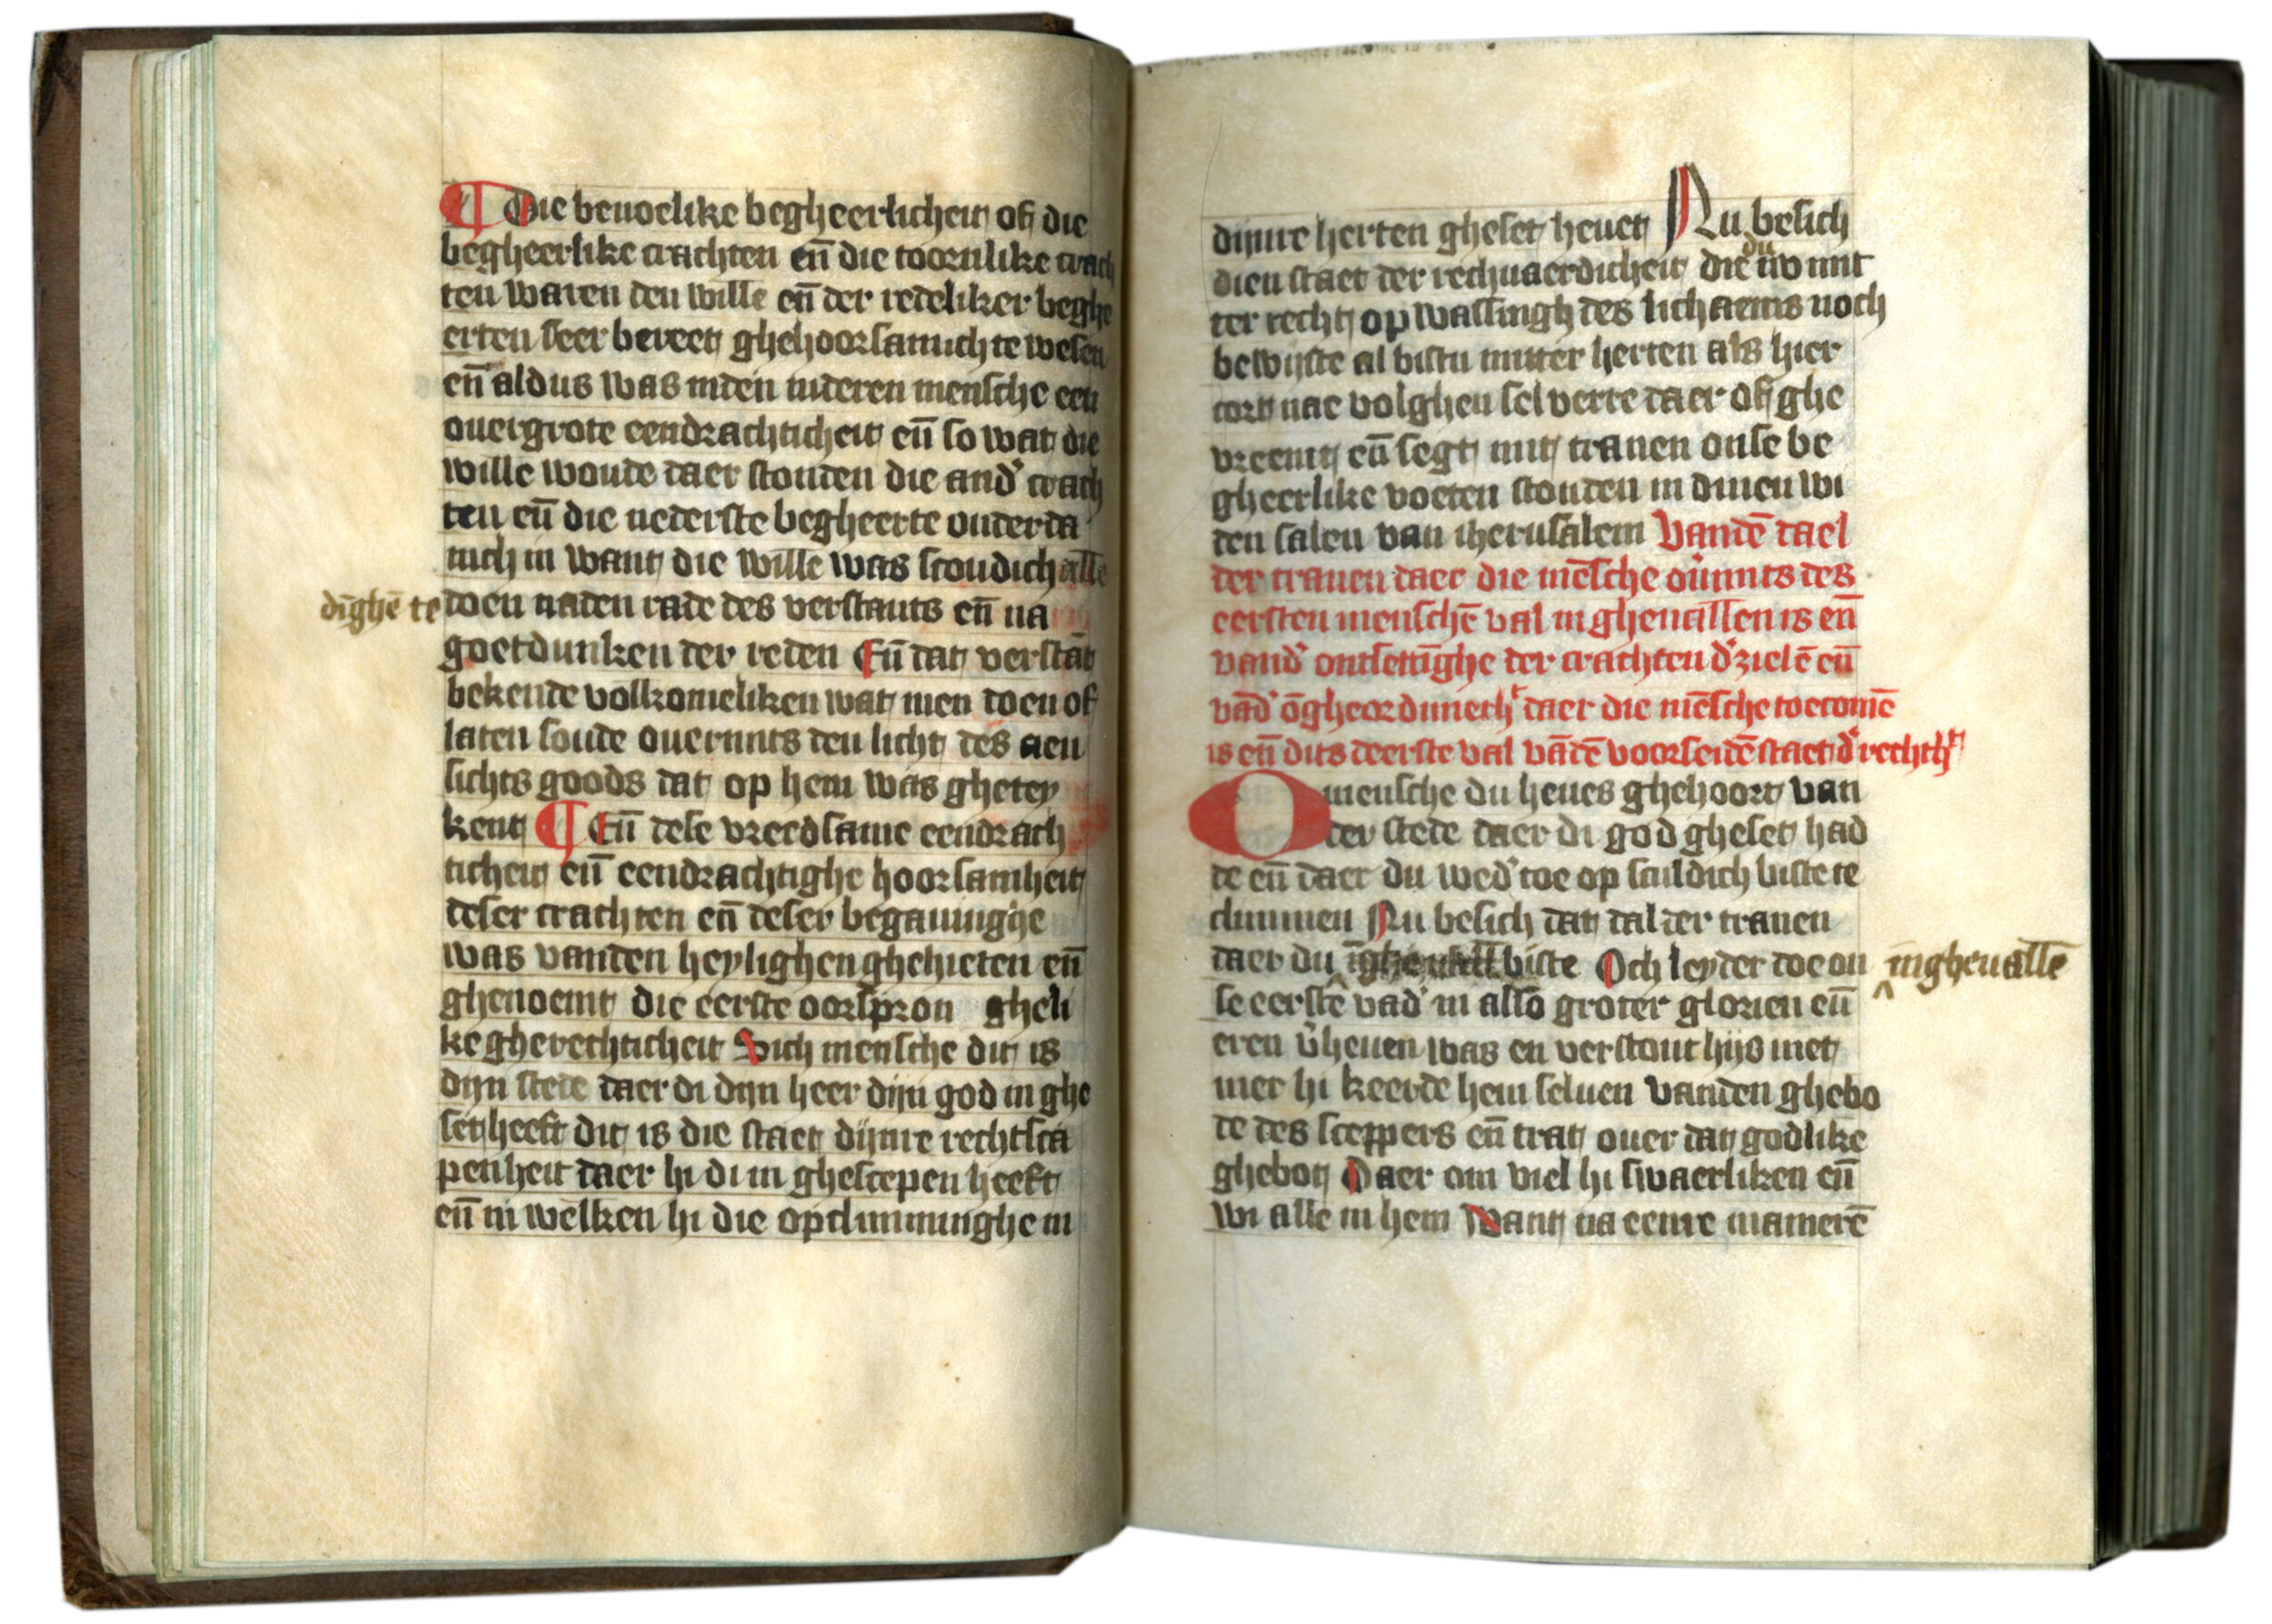 Die beuoelike begheerlicheit of die
begheerlike crachten en̄ die toornlike crach
ten waren den wille en̄ der redeliker beghe
erten seer bereet ghehoorsamich te wesen
en̄ aldus was inden inderen mensche een
ouergrote eendrachticheit en̄ so wat die
wille woude daer stonden die and' crach
ten en̄ die nederste begheerte onderda
nich in want die wille was stondich alle
dīghē te doen naden rade des verstants en̄ na
goetdunken der reden En̄ dat verstāt
bekende volkomeliken wat men doen of
laten soude ouermits den licht des aen
sichts goods dat op hem was ghetey
kent En̄ dese vreedsame eendrach
ticheit en̄ eendrachtighe hoorsamheit
deser crachten en̄ deser begauinghe
was vanden heylighen ghehieten en̄
ghenoemt die eerste oorspron gheli
ke gherechticheit Sich mensche dit is
dijn stede daer di dijn heer dijn god in ghe
set heeft dit is die staet dijnre rechtsca
penheit daer hi di in ghescepen heeft
en̄ in welken hi die opclimminghe in
dijnre herten gheset heuet Nu besich
dien staet der rechuaerdicheit die du wt
ter recht op wassingh des lichaems noch
bewijste al bistu mitter herten als hier
cort nae volghen sel verre daer of ghe
vreemt en̄ segt mit tranen onse be
gheerlike voeten stonden in dinen wi
den salen van iherusalem Vandē dael
der tranen daer die mēsche ou'mits des
eersten menschē val in gheuallen is en̄
vand' ontsettīghe der crachten d' zielē en̄
vād' ōgheordineth't daer die mēsche toe comē
is en̄ dits deerste val vādē voorseidē staet d' rechth't
O mensche du heues ghehoort van
der stede daer di god gheset had
de en̄ daer du wed' toe op sculdich biste te
climmen Nu besich dat dal der tranen
daer du ingheuallē biste Och leyder doe on
se eerste vad' in also groter glorien en̄
eren v'heuen was en verstont hijs niet
mer hi keerde hem seluen vanden ghebo
de des sceppers en̄ trat ouer dat godlike
ghebot Daer om viel hi swaerliken en̄
wi alle in hem Want na eenre manierē